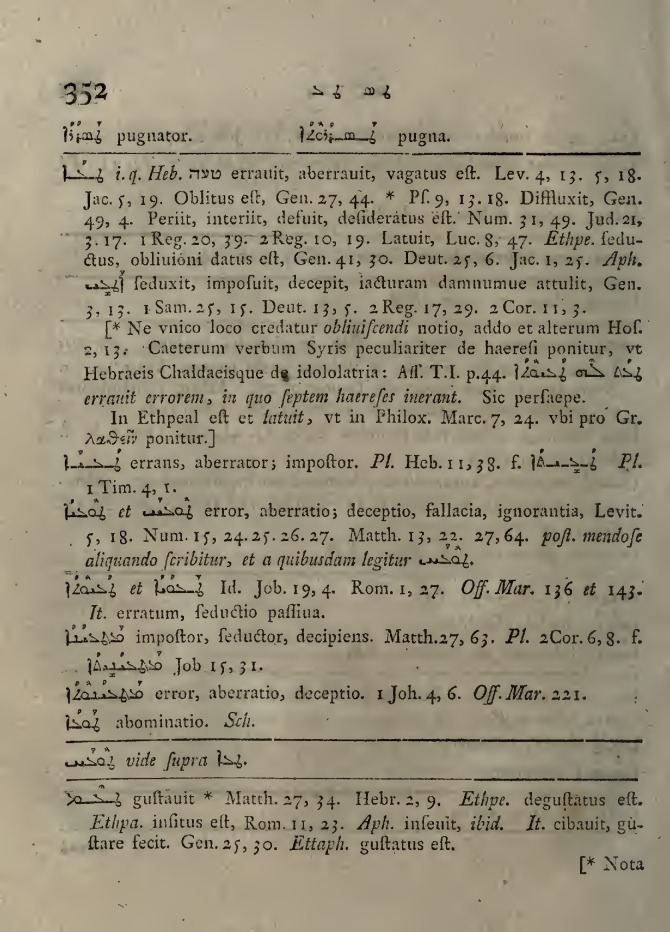 352 ܛܣ ܛܥ
ܛܣܪܐ pugnator. pugna.
ܛܥܐ i. q. Heb. טעה errauit, aberrauit, vagatus eſt. Lev. 4, 13. 5, 18.
Jac. 5, 19. Oblitus eſt, Gen. 27, 44. * Pſ. 9, 13. 18. Diffluxit, Gen.
49, 4. Periit, interiit, defuit, deſideratus eſt. Num. 31, 49. Jud. 21,
3. 17. 1 Reg. 20, 39. 2 Reg. 10, 19. Latuit, Luc. 8, 47. Ethpe. ſedu-
ctus, obliuioni datus eſt, Gen. 41, 30. Deut. 25, 6. Jac. 1, 25. Aph.
ܐܛܥܝ ſeduxit, impoſuit, decepit, iacturam damnumue attulit, Gen.
3, 13. 1 Sam. 25, 15. Deut. 13, 5. 2 Reg. 17, 29. 2 Cor. 11, 3.
[* Ne vnico loco credatur obliuiſcendi notio, addo et alterum Hoſ.
2, 13. Caeterum verbum Syris peculiariter de haereſi ponitur, vt
Hebraeis Chaldaeisque de idololatria: Aſſ. T. I. p. 44.
errauit errorem, in quo ſeptem haereſes inerant. Sic perſaepe.
In Ethpeal eſt et latuit, vt in Philox. Marc. 7, 24. vbi pro Gr.
λαθεῖν ponitur.]
ܛܥܝܐ errans, aberrator; impoſtor. Pl. Hebr. 11, 38. f. ܛܥܝܬܐ Pl.
1 Tim. 4, 1.
ܛܘܥܝܐ et ܛܘܥܝܝ error, aberratio; deceptio, fallacia, ignorantia, Levit.
5, 18. Num. 15, 24. 25. 26. 27. Matth. 13, 22. 27, 64. poſt. mendoſe
aliquando ſcribitur, et a quibusdam legitur ܛܘܥܝܝ.
ܛܥܝܘܬܐ et Id. Job. 19, 4. Rom. 1, 27. Off. Mar. 136 et 143.
It. erratum, ſeductio paſſiua.
ܡܛܥܝܢܐ impoſtor, ſeductor, decipiens. Matth. 27, 63. Pl. 2 Cor. 6, 8. f.
ܡܛܥܝܢܝܬܐ Job 15, 31.
ܡܛܥܝܢܘܬܐ error, aberratio, deceptio. 1 Joh. 4, 6. Off. Mar. 221.
ܛܘܥܐ abominatio. Sch.
ܛܘܥܝܝ vide ſupra ܛܥܐ.
ܛܥܡ guſtauit * Matth. 27, 34. Hebr. 2, 9. Ethpe. deguſtatus eſt.
Ethpa. inſitus eſt, Rom. 11, 23. Aph. inſeuit, ibid. It. cibauit, gu-
ſtare fecit. Gen. 25, 30. Ettaph. guſtatus eſt.
[* Nota